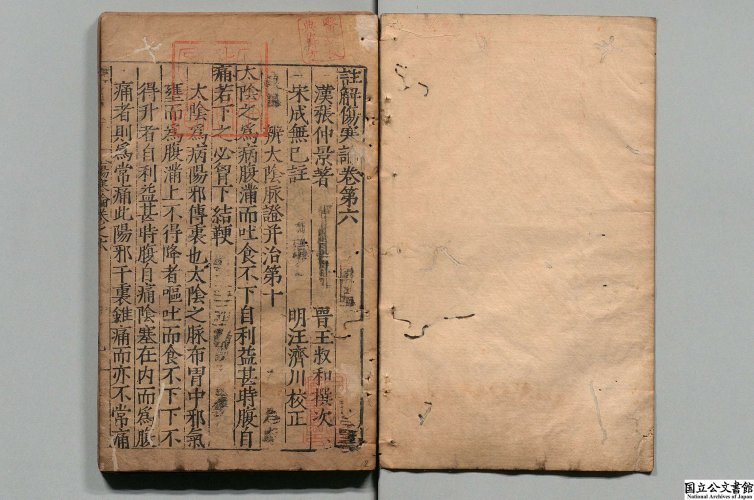 註解傷寒論卷第六
漢張仲景著 晉王叔和撰次
宋成無已註 明汪濟川校正
辨太陰脉證并治第十
太陰之為病腹滿而吐食不下自利益甚時腹自
痛若下之必胷下結鞕
太陰為病陽邪傳裏也太陰之脉布胃中邪氣
壅而為腹滿上不得降者嘔吐而食不下下不
得升者自利益甚時腹自痛陰塞在内而為腹
痛者則為常痛此陽邪干裏雖痛而亦不常痛
国立公文書館
National Archives of Japan